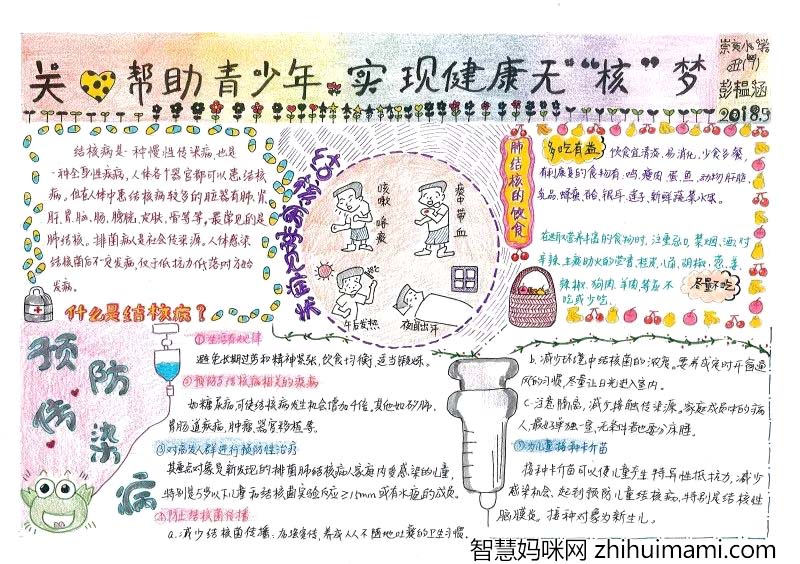 关 帮助青少年 实现健康无“核”梦
彭韫涵
2018.9
结核病是一种慢性传染病，也是
一种全身性疾病，人体各个器官都可以患结核
病。但在人体中患结核病较多的脏器有肺、肾、
肝、胃、脑、肠、膀胱、皮肤、骨等等，最常见的是
肺结核。排菌病人是社会传染源。人体感染
结核菌后不一定发病，仅于低抗力低落时方始
发病。
什么是结核病？
咳嗽 咳痰
痰中带血
午后发热
夜间出汗
肺结核的饮食
多吃有益
饮食宜清淡，易消化，少食多餐，
有利康复的食物有：鸡、瘦肉、蛋、鱼、动物肝脏、
乳品、蜂蜜、蛤、银耳、莲子、新鲜蔬菜水果。
辣椒、狗肉、羊肉等应不
吃或少吃。
尽量不吃
预防传染病
①生活有规律
避免长期过劳和精神紧张，饮食均衡，适当锻炼。
②预防与结核病相关的疾病
如糖尿病，可使结核病发生机会增加4倍。其他如矽肺、
胃肠道疾病、肿瘤、器官移植等。
③对高发人群进行预防性治疗
其重点对象是新发现的排菌肺结核病人家庭内受感染的儿童，
特别是5岁以下儿童而结核菌实验反应≥15mm或有水疱的成员。
④防止结核菌传播
a.减少结核菌传播：加强宣传，养成人人不随地吐痰的卫生习惯。
b.减少环境中结核菌的浓度。要养成定时开窗通
风的习惯，尽量让日光进入室内。
C.注意隔离，减少接触传染源。家庭成员中的病
人，最好单独一室，无条件者也要分床睡。
⑤为儿童接种卡介苗
接种卡介苗可以使儿童产生特异性抵抗力，减少
感染机会，起到预防儿童结核病，特别是结核性
脑膜炎。接种对象为新生儿。
智慧妈咪网 zhihuimami.com